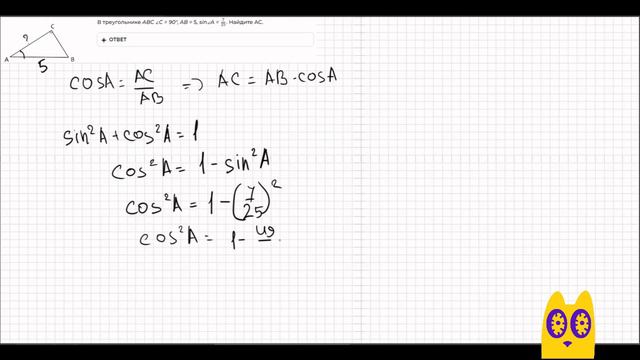 В треугольнике ABC ∠C = 90°, AB = 5, sin∠A = 7/25. Найдите AC.
+ ОТВЕТ
C
?
A
B
5
cosA = AC/AB => AC = AB · cosA
sin²A + cos²A = 1
cos²A = 1 - sin²A
cos²A = 1 - (7/25)²
cos²A = 1 - 49